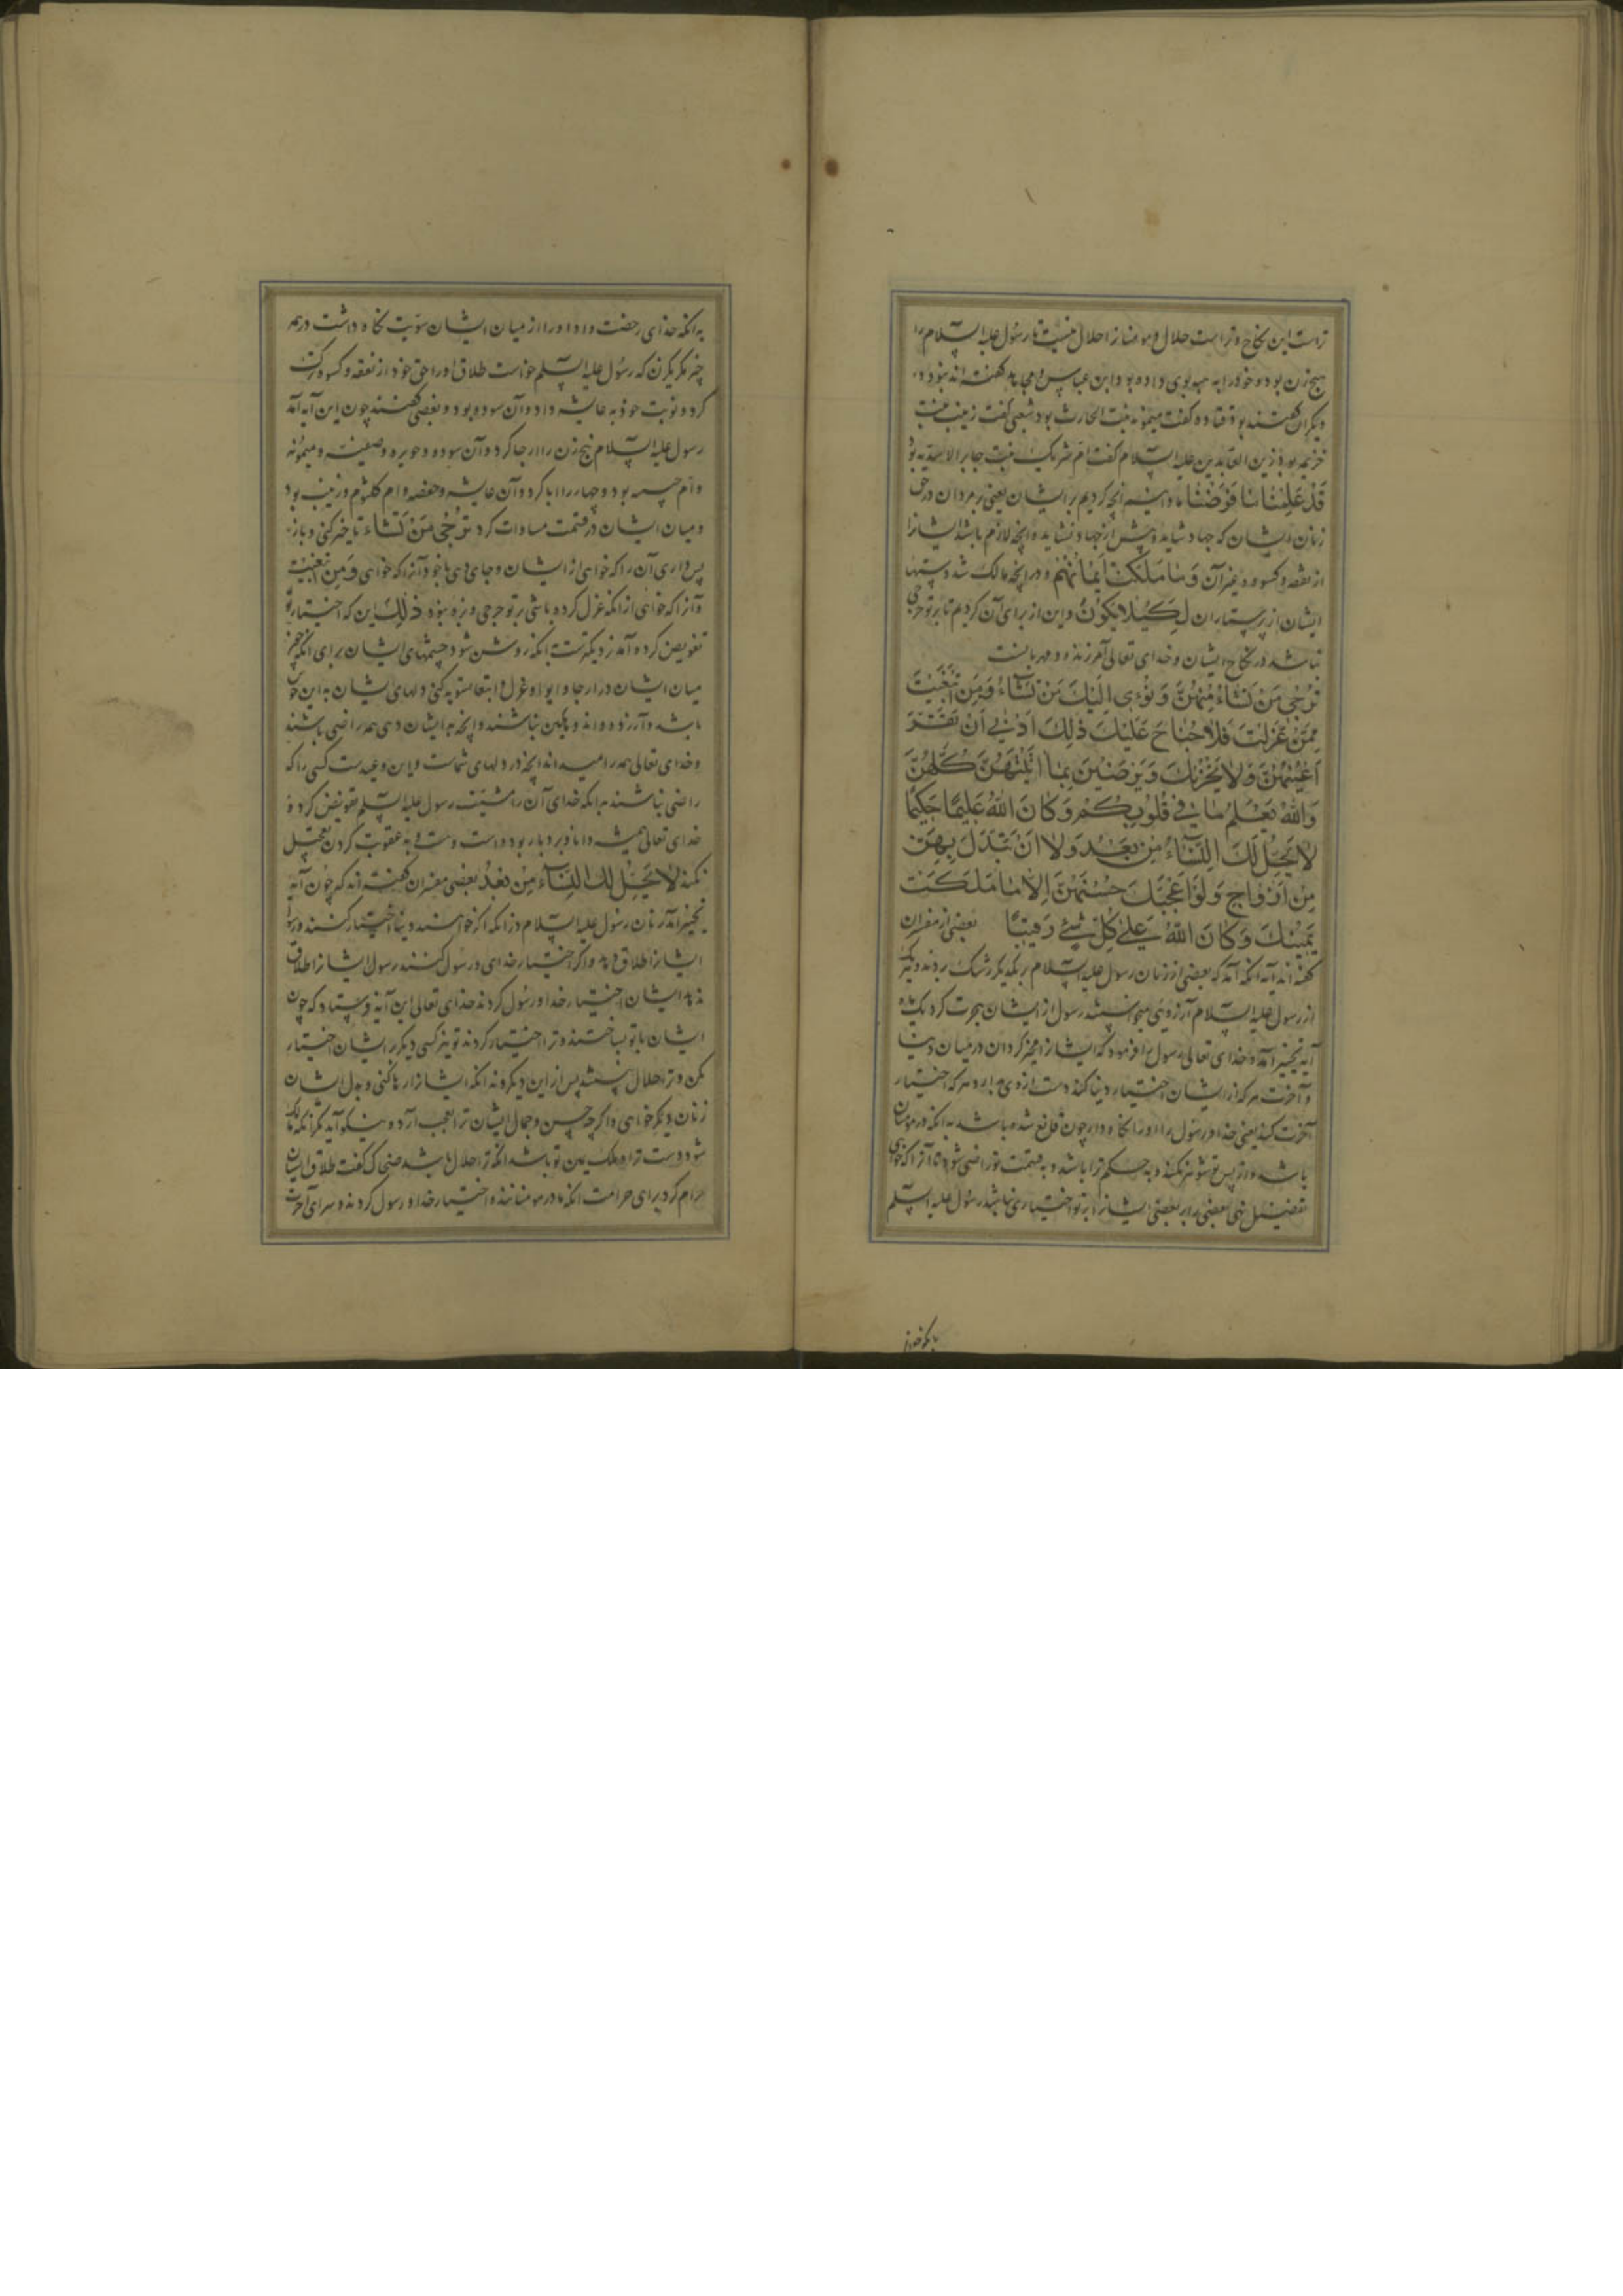 تراست این نکاح و تراست حلال و مومنان را حلال نیست تا رسول علیه السلام را
هیچ زن بود و خود را به هبه بوی داده بود ابن عباس و مجاهد گفته اند نبود و
دیگران گفتند بود قتاده گفت میمونه بنت الحارث بود شعبی گفت زینب بنت
خزیمه بود زین العابدین علیه السلام گفت ام شریک بنت جابر الاسدیه بود
قَدْ عَلِمْنَا مَا فَرَضْنَا ما دانیم انچه کردیم بر ایشان یعنی بر مردان در حق
زنان ایشان که چهار شاید و بیش از چهار نشاید و انچه لازم باشد ایشانرا
از نفقه و کسوه و غیر آن وَمَا مَلَكَتْ أَيْمَانُهُمْ و در انچه مالک شد دستهای
ایشان از پرستاران لِكَيْلَا يَكُونَ و این از برای آن کردیم تا بر تو حرجی
نباشد در نکاح ایشان و خدای تعالی آمرزنده و مهربانست
تُرْجِي مَنْ تَشَاءُ مِنْهُنَّ وَتُؤْوِي إِلَيْكَ مَنْ تَشَاءُ وَمَنِ ابْتَغَيْتَ
مِمَّنْ عَزَلْتَ فَلَا جُنَاحَ عَلَيْكَ ذَلِكَ أَدْنَى أَنْ تَقَرَّ
أَعْيُنُهُنَّ وَلَا يَحْزَنَّ وَيَرْضَيْنَ بِمَا آتَيْتَهُنَّ كُلُّهُنَّ
وَاللَّهُ يَعْلَمُ مَا فِي قُلُوبِكُمْ وَكَانَ اللَّهُ عَلِيمًا حَكِيمًا
لَا يَحِلُّ لَكَ النِّسَاءُ مِنْ بَعْدُ وَلَا أَنْ تَبَدَّلَ بِهِنَّ
مِنْ أَزْوَاجٍ وَلَوْ أَعْجَبَكَ حُسْنُهُنَّ إِلَّا مَا مَلَكَتْ
يَمِينُكَ وَكَانَ اللَّهُ عَلَى كُلِّ شَيْءٍ رَقِيبًا بعضی از مفسران
گفته اند آیه انگه آمد که بعضی از زنان رسول علیه السلام بر یکدیگر رشک بردند و هریک
از رسول علیه السلام آرزوی میخواستند رسول از ایشان هجرت کرد یک ماه
آیه تخییر آمد و خدای تعالی رسول را فرمود که ایشانرا مخیر گردان در میان دنیا
و آخرت هر که از ایشان اختیار دنیا کند دست از وی بدار و هر که اختیار
آخرت کند یعنی خدا و رسول را او را نگاه دار چون قانع شده باشد به انکه در مومنان
باشد و از پس تو شوهر نکند و به حکم تو را باشد و به قسمت تو راضی شود تا آنرا که خواهی
تفضیل نهی بعضی را بر بعضی ایشانرا بر تو اختیاری نباشد رسول علیه السلم
به انکه خدای رخصت داد او را از میان ایشان سویت نگاه داشت در همه
چیز مگر یک زن که رسول علیه السلم خواست طلاق او را حق خود از نفقه و کسوه ترک
کرد و نوبت خود به عایشه داد و آن سوده بود و بعضی گفتند چون این آیه آمد
رسول علیه السلام پنج زن را ارجا کرد و آن سوده و جویریه و صفیه و میمونه
و ام حبیبه بود و چهار را ایوا کرد و آن عایشه و حفصه و ام کلثوم و زینب بود
و میان ایشان در قسمت مساوات کرد تُرْجِي مَنْ تَشَاءُ تاخیر کنی و باز
پس داری آن را که خواهی از ایشان و جای دهی با خود آنرا که خواهی وَمَنِ ابْتَغَيْتَ
و آنرا که خواهی از انکه عزل کرده باشی بر تو حرجی و بزه نبود ذَلِكَ این که اختیار با تو
تفویض کرده آمد نزدیکترست بانکه روشن شود چشمهای ایشان برای انکه چون
میان ایشان در ارجا و ایوا و عزل و ابتغا سویه کنی دلهای ایشان به این خوش
باشد و آزرده و اندوهگین نباشند و انچه به ایشان دهی همه راضی باشند
و خدای تعالی همه را میداند انچه در دلهای شماست و این وعیدست کسی را که
راضی نباشند به انکه خدای آن را مشیت رسول علیه السلم تفویض کرد و
خدای تعالی همیشه دانا و بردبار بوده است و به عقوبت کردن تعجیل
نکند لَا يَحِلُّ لَكَ النِّسَاءُ مِنْ بَعْدُ بعضی مفسران گفته اند که چون آیه
تخییر آمد زنان رسول علیه السلام در انکه اگر خواهند دنیا اختیار کنند و رسول
ایشانرا طلاق دهد و اگر اختیار خدای و رسول کنند رسول ایشانرا طلاق
ندهد ایشان اختیار خدا و رسول کردند خدای تعالی این آیه فرستاد که چون
ایشان با تو بساختند و ترا اختیار کردند تو نیز کسی دیگر بر ایشان اختیار
مکن و ترا حلال نیستند پس از این دیگر و نه انکه ایشانرا رها کنی و بدل ایشان
زنان دیگر خواهی و اگرچه حسن و جمال ایشان ترا بعجب آرد و نیکو آید مگر انکه مالک
شود دست ترا و ملک یمین تو باشد انکه ترا حلال باشد ضحاک گفت طلاق ایشان
حرام کرد برای حرامت انکه مادر مومنانند و اختیار خدا و رسول کردند و سرای آخرت